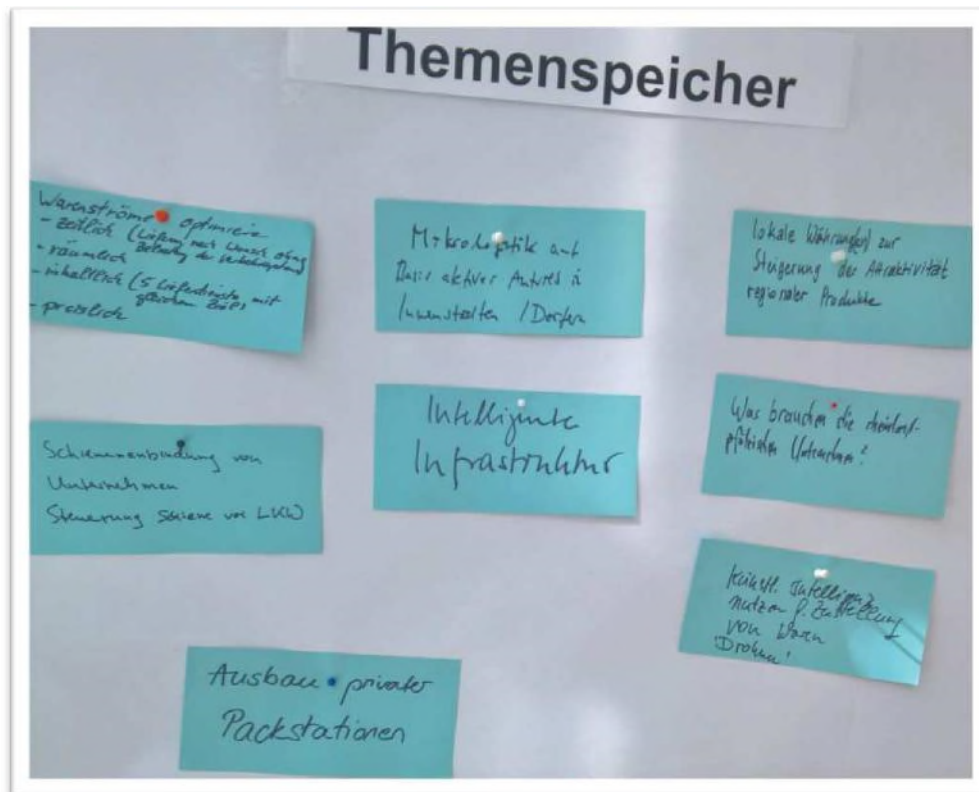 Themenspeicher
Warenströme optimieren
- zeitlich (Lieferung nach Wunsch ohne
Belastung der
- räumlich
- inhaltlich (5 Lieferdienste mit
gleichem
- preislich
Mikrologistik auf
Basis aktiver in
Innenstädten / Dörfern
lokale Währung(en) zur
Steigerung der Attraktivität
regionaler Produkte
Schienenanbindung von
Unternehmen
Steuerung Schiene vor LKW
Intelligente
Infrastruktur
Was brauchen die rheinland-
pfälzischen Unternehmen?
Künstl. Intelligenz
nutzen f. Zustellung
von Waren
Drohnen!
Ausbau privater
Packstationen